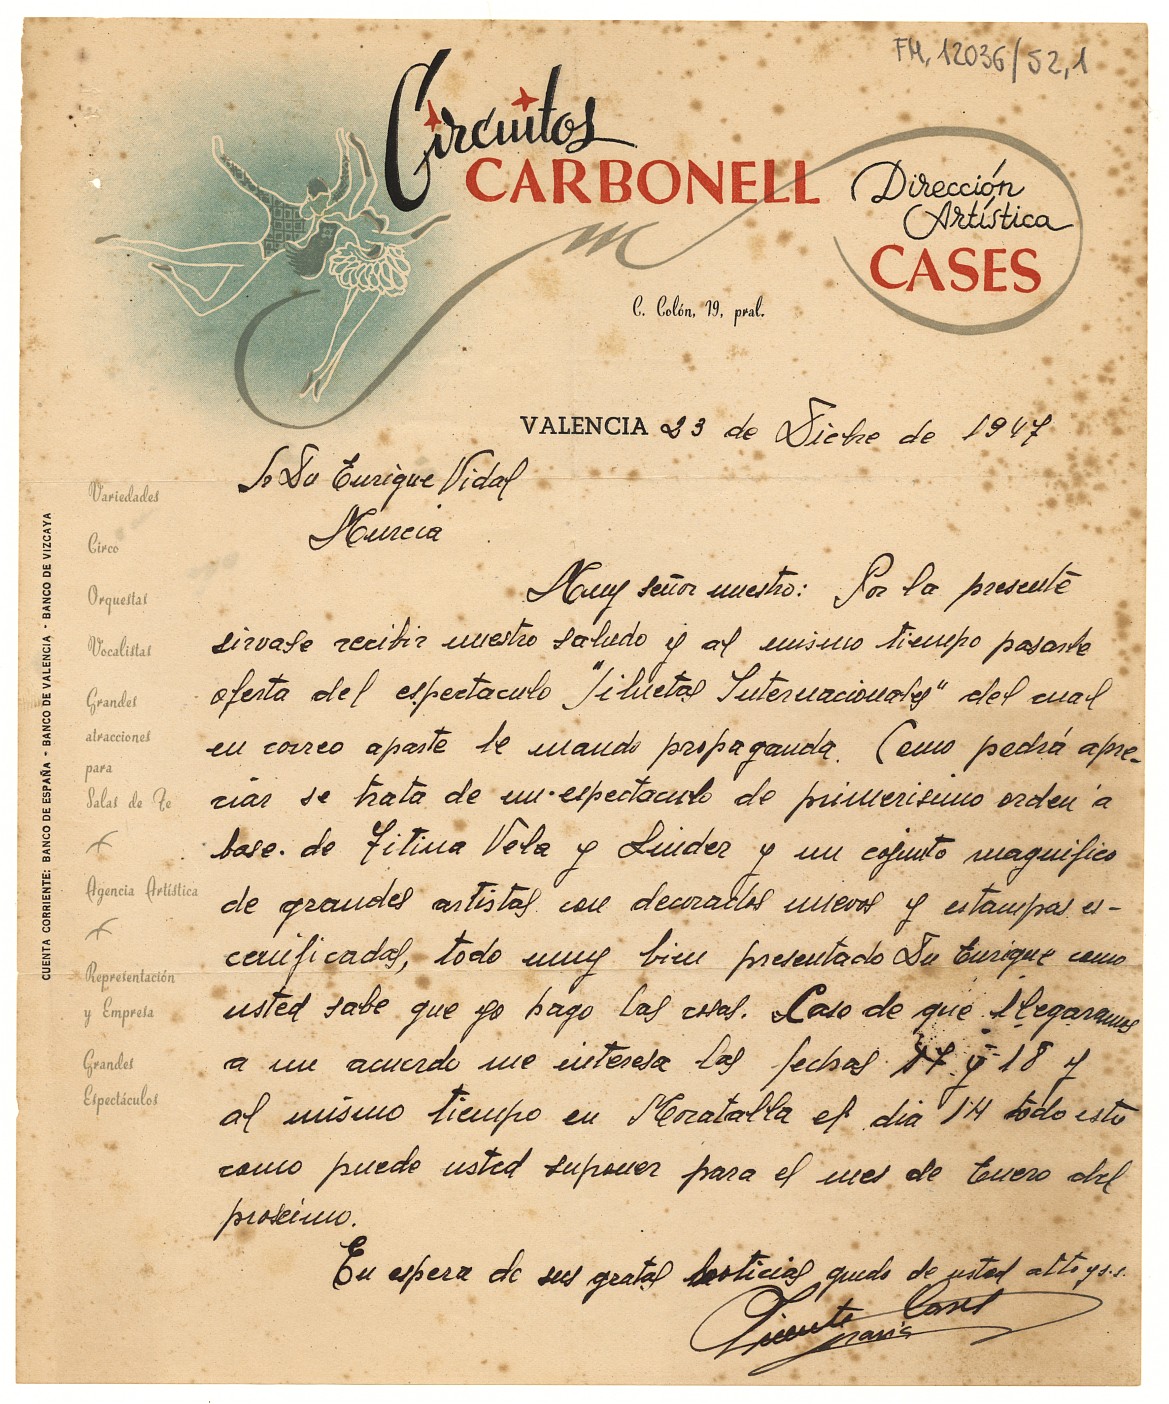 FM, 12036/52,1
Circuitos
CARBONELL
Dirección
Artística
CASES
C. Colón, 19, pral.
VALENCIA 23 de Dicbre de 1947
Sr Dn Enrique Vidal
Murcia
Muy señor nuestro: Por la presente
sirvase recibir nuestro saludo y al mismo tiempo pasarle
oferta del espectaculo "Siluetas Internacionales" del cual
en correo aparte le mando propaganda. Como podrá apre-
ciar se trata de un espectaculo de primerisimo orden a
base de Titina Vela y Linder y un cojunto magnifico
de grandes artistas con decorados nuevos y estampas es-
cenificadas, todo muy bien presentado Dn Enrique como
usted sabe que yo hago las cosas. Caso de que llegaramos
a un acuerdo me interesa las fechas 17 y 18 y
al mismo tiempo en Moratalla el dia 14 todo esto
como puede usted suponer para el mes de Enero del
proximo.
En espera de sus gratas noticias quedo de usted atto y s.s.
Vicente Cases
Variedades
Circo
Orquestas
Vocalistas
Grandes
atracciones
para
Salas de Te
Agencia Artística
Representación
y Empresa
Grandes
Espectáculos
CUENTA CORRIENTE: BANCO DE ESPAÑA - BANCO DE VALENCIA - BANCO DE VIZCAYA